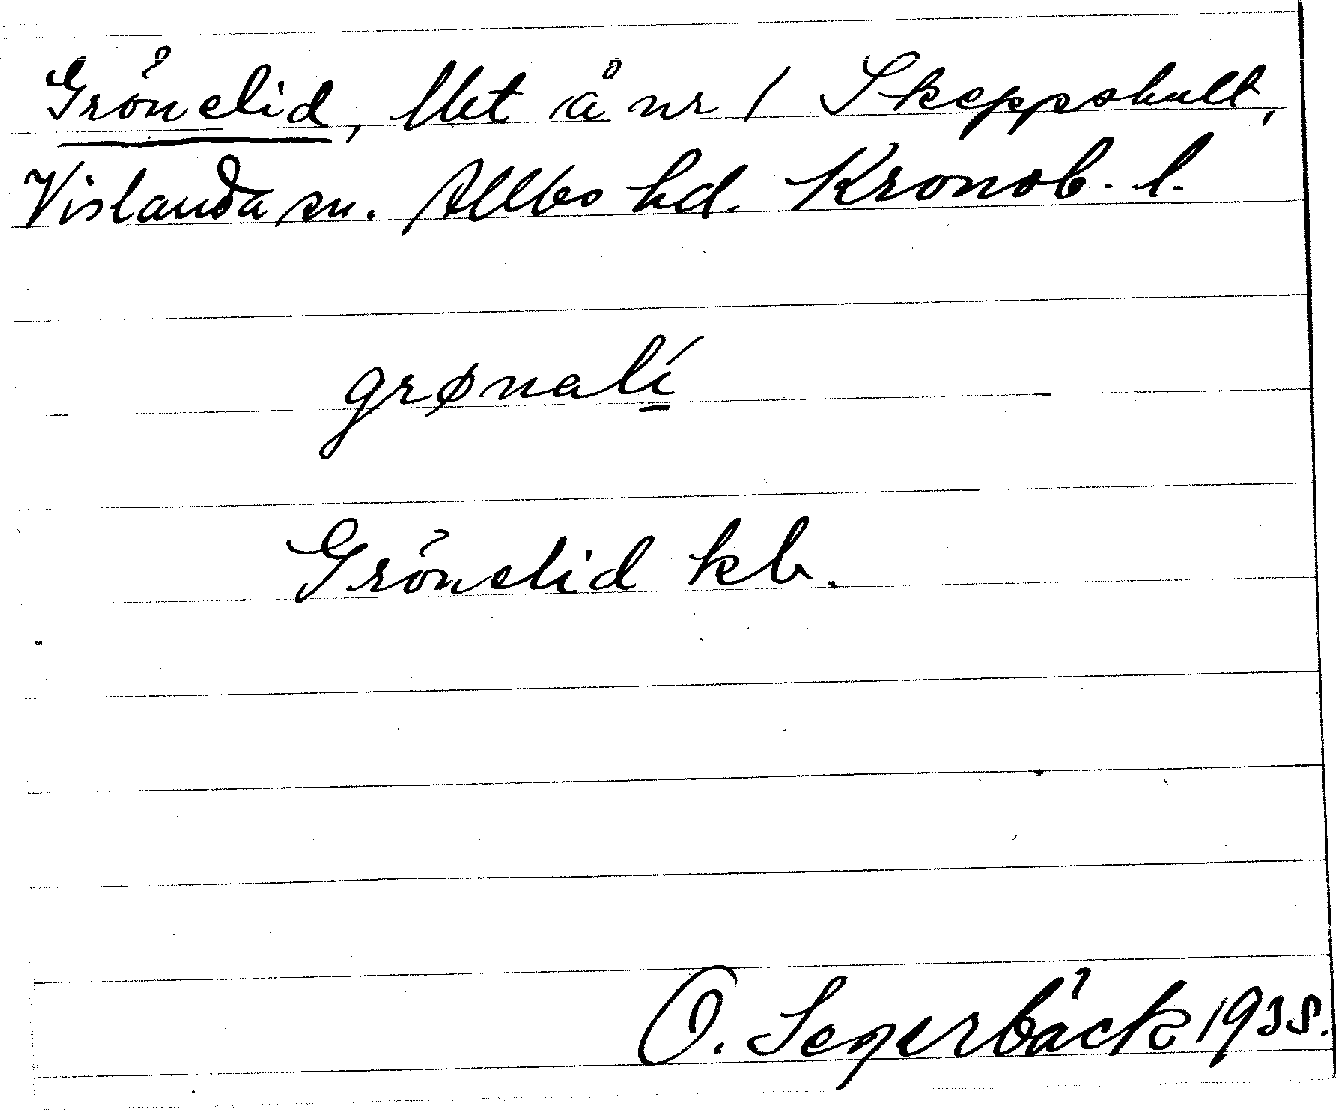 Grönelid, Utst å nr 1 Skeppshult,
Vislanda sn. Allbo hd. Kronob. l.
grønalí
Grönelid kb.
O. Segerbäck 1935.